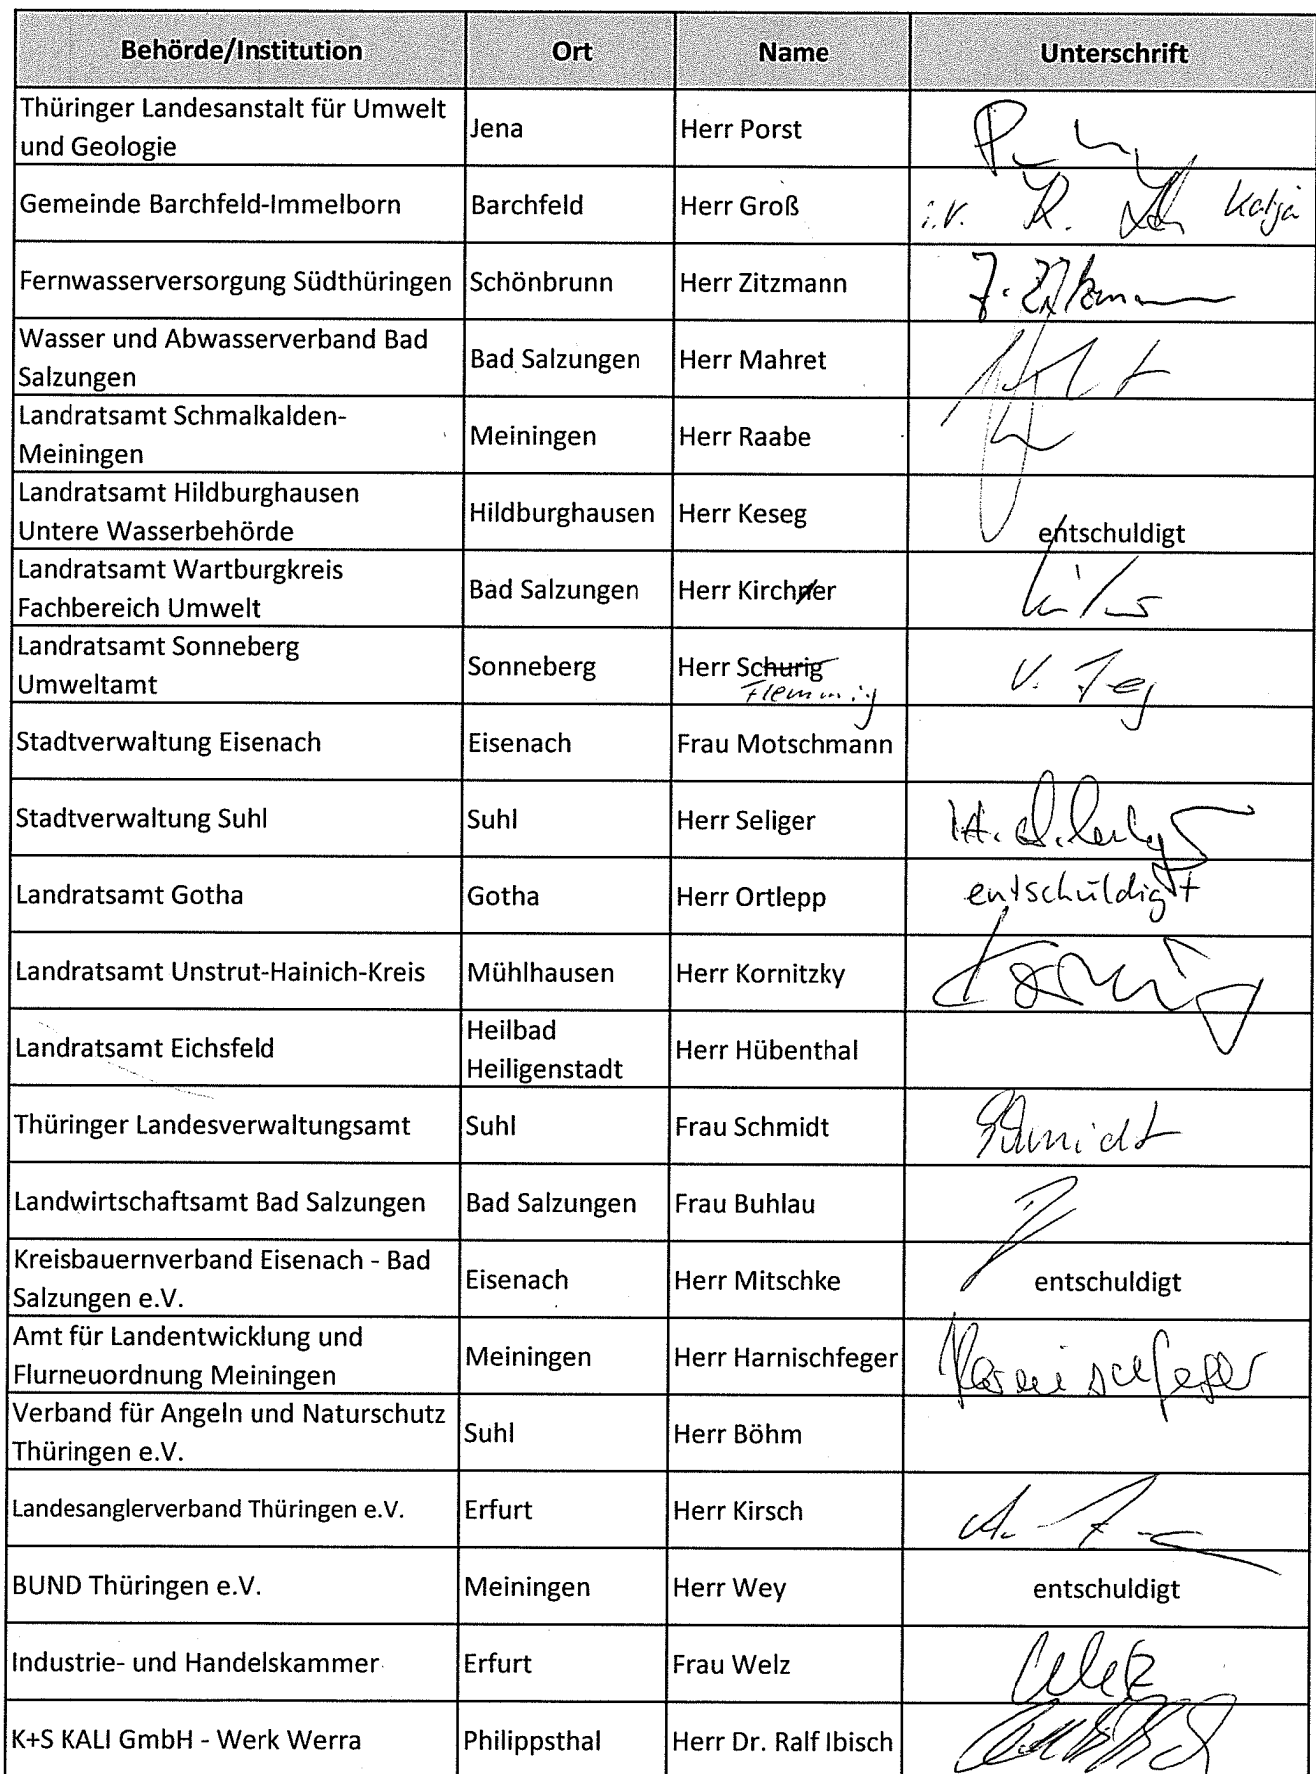 Behörde/Institution Ort Name Unterschrift
Thüringer Landesanstalt für Umwelt
und Geologie
Jena Herr Porst
Gemeinde Barchfeld-Immelborn Barchfeld Herr Groß i.V. Katja
Fernwasserversorgung Südthüringen Schönbrunn Herr Zitzmann
Wasser und Abwasserverband Bad
Salzungen
Bad Salzungen Herr Mahret
Landratsamt Schmalkalden-
Meiningen
Meiningen Herr Raabe
Landratsamt Hildburghausen
Untere Wasserbehörde
Hildburghausen Herr Keseg entschuldigt
Landratsamt Wartburgkreis
Fachbereich Umwelt
Bad Salzungen Herr Kirchner
Landratsamt Sonneberg
Umweltamt
Sonneberg Herr Schurig
Flemmig
Stadtverwaltung Eisenach Eisenach Frau Motschmann
Stadtverwaltung Suhl Suhl Herr Seliger
Landratsamt Gotha Gotha Herr Ortlepp entschuldigt
Landratsamt Unstrut-Hainich-Kreis Mühlhausen Herr Kornitzky
Landratsamt Eichsfeld
Heilbad
Heiligenstadt
Herr Hübenthal
Thüringer Landesverwaltungsamt Suhl Frau Schmidt Schmidt
Landwirtschaftsamt Bad Salzungen Bad Salzungen Frau Buhlau
Kreisbauernverband Eisenach - Bad
Salzungen e.V.
Eisenach Herr Mitschke entschuldigt
Amt für Landentwicklung und
Flurneuordnung Meiningen
Meiningen Herr Harnischfeger Harnischfeger
Verband für Angeln und Naturschutz
Thüringen e.V.
Suhl Herr Böhm
Landesanglerverband Thüringen e.V. Erfurt Herr Kirsch
BUND Thüringen e.V. Meiningen Herr Wey entschuldigt
Industrie- und Handelskammer Erfurt Frau Welz Welz
K+S KALI GmbH - Werk Werra Philippsthal Herr Dr. Ralf Ibisch